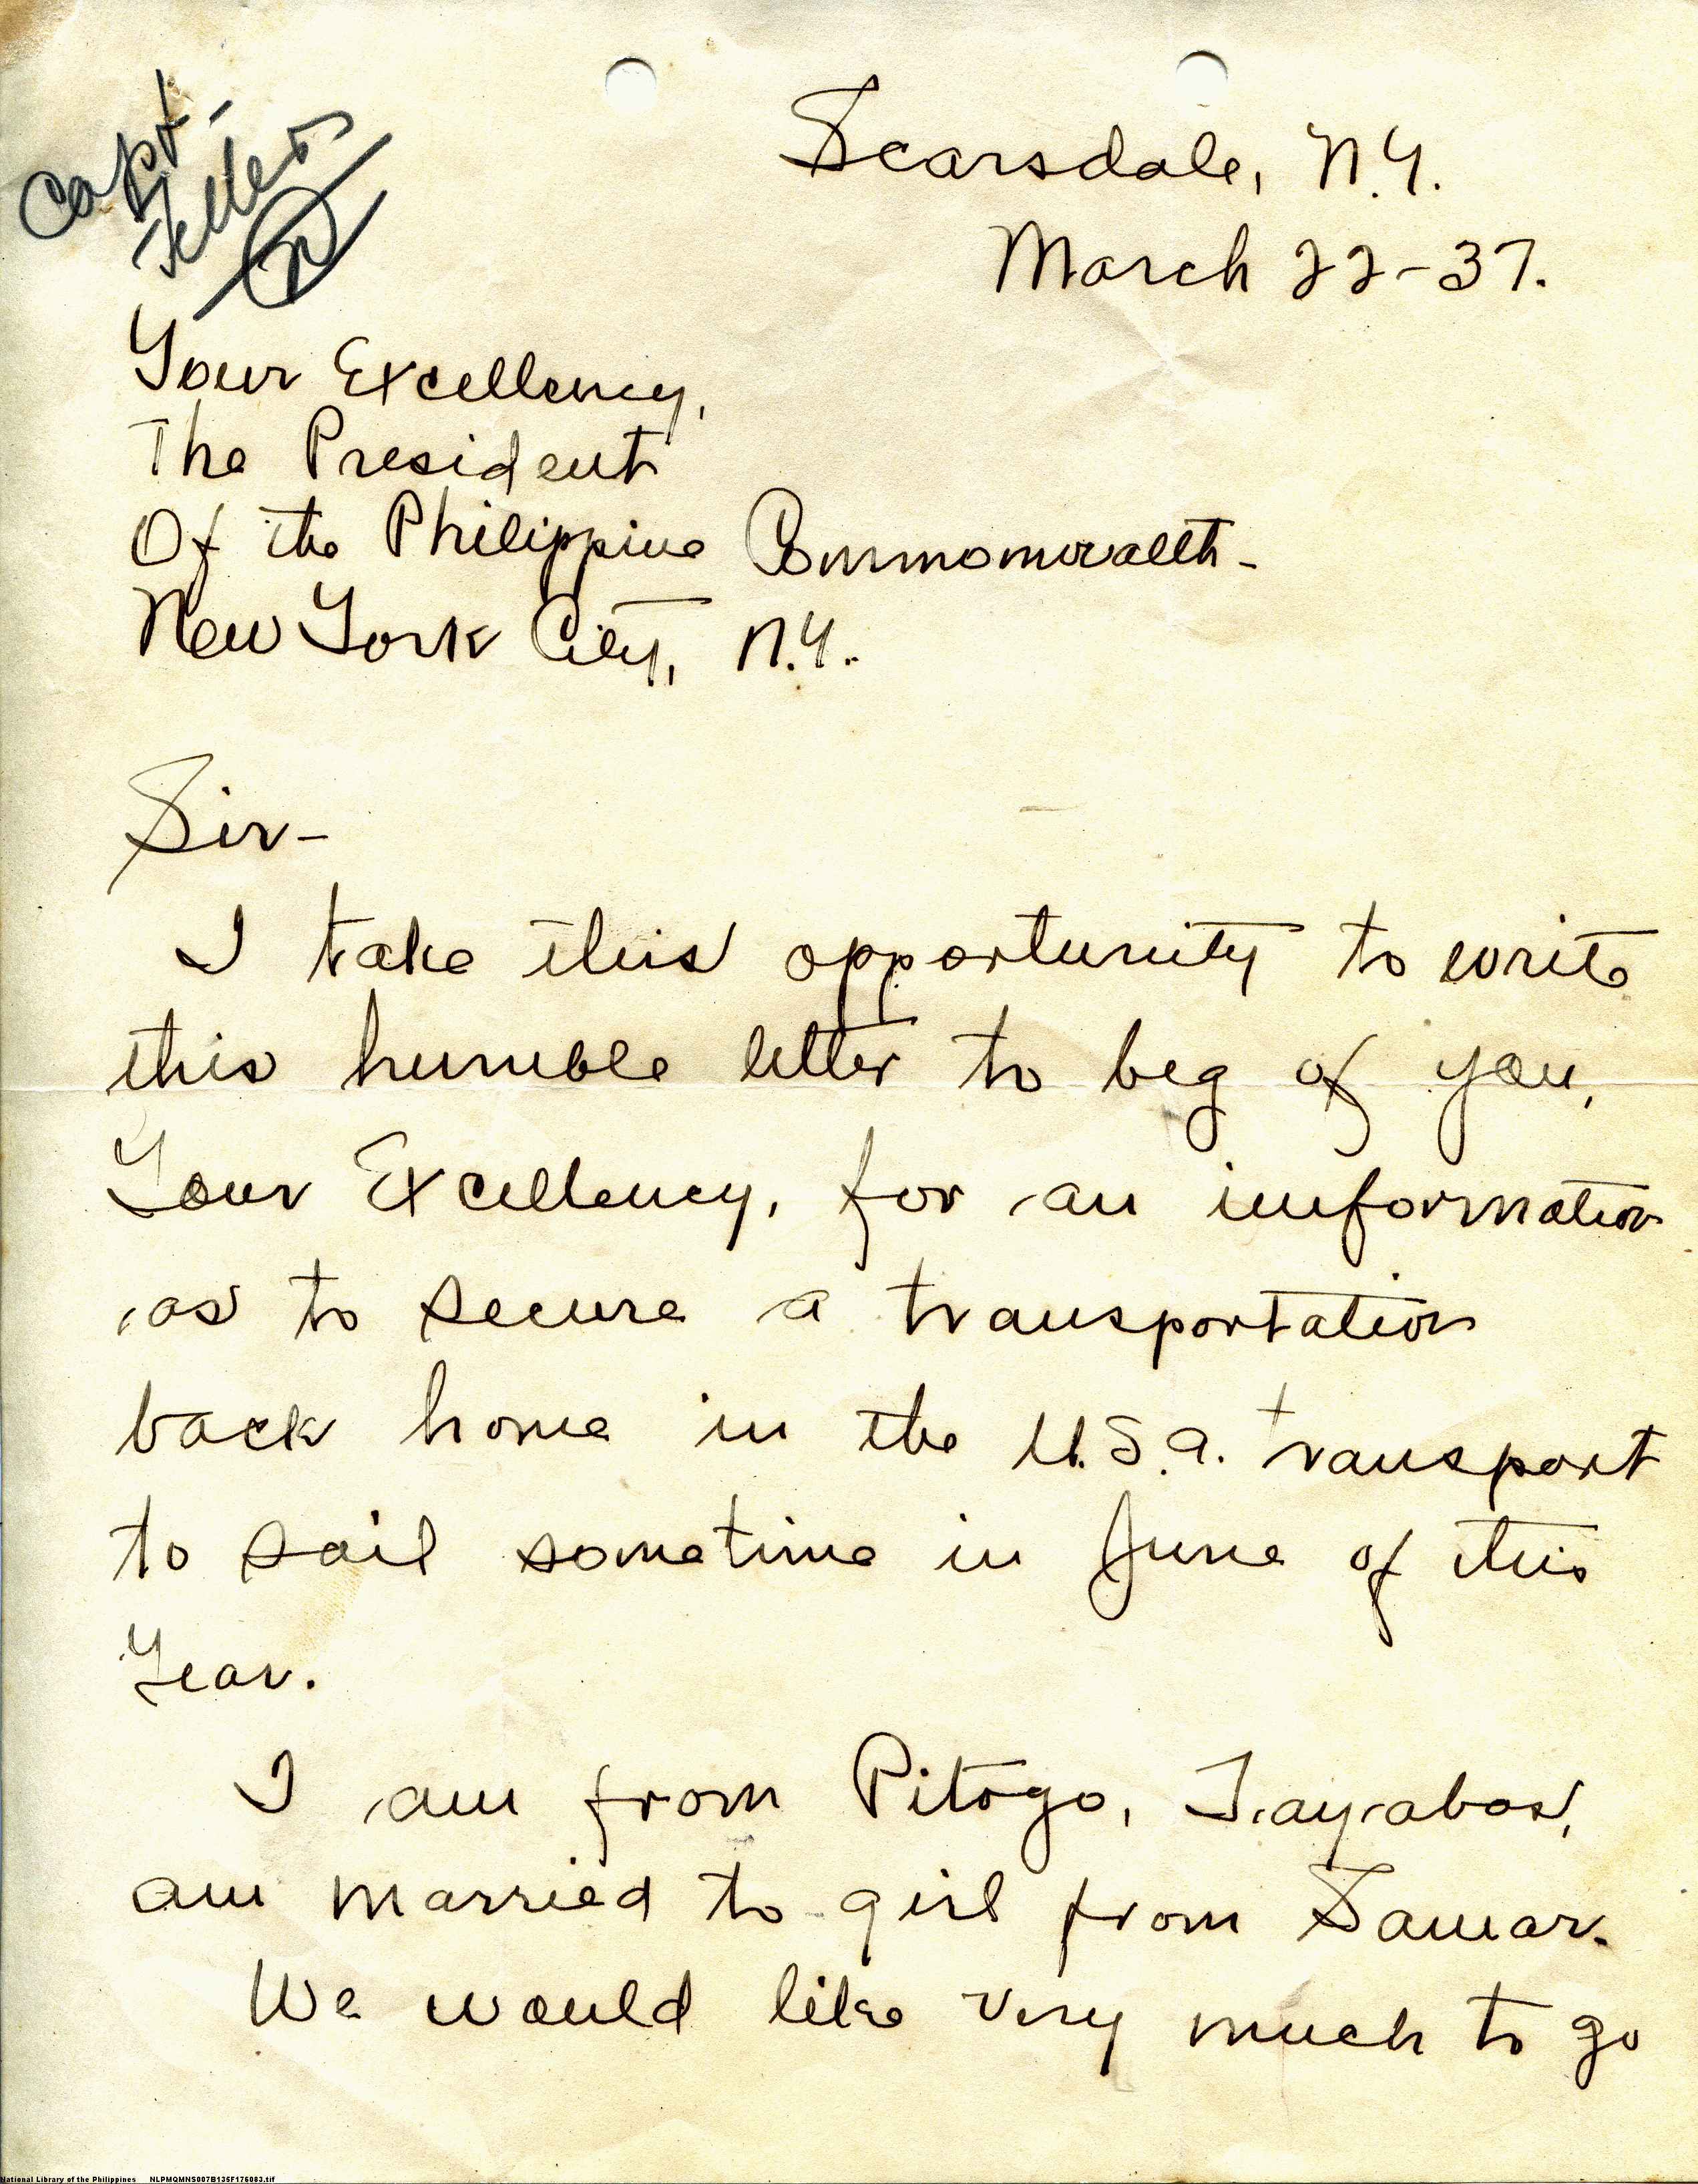 Capt.
Fellers
Scarsdale, N.Y.
March 22-37.
Your Excellency,
The President
Of the Philippine Commomwealth-
New York City, N.Y.
Sir-
I take this opportunity to write
this humble letter to beg of you,
Your Excellency, for an imformation
as to secure a transportation
back home in the U.S.A. Transport
to sail sometime in June of this
Year.
I am from Pitogo, Tayabas,
am married to girl from Samar.
We would like very much to go
National Library of the Philippines NLPMQMNS007B135F176083.tif